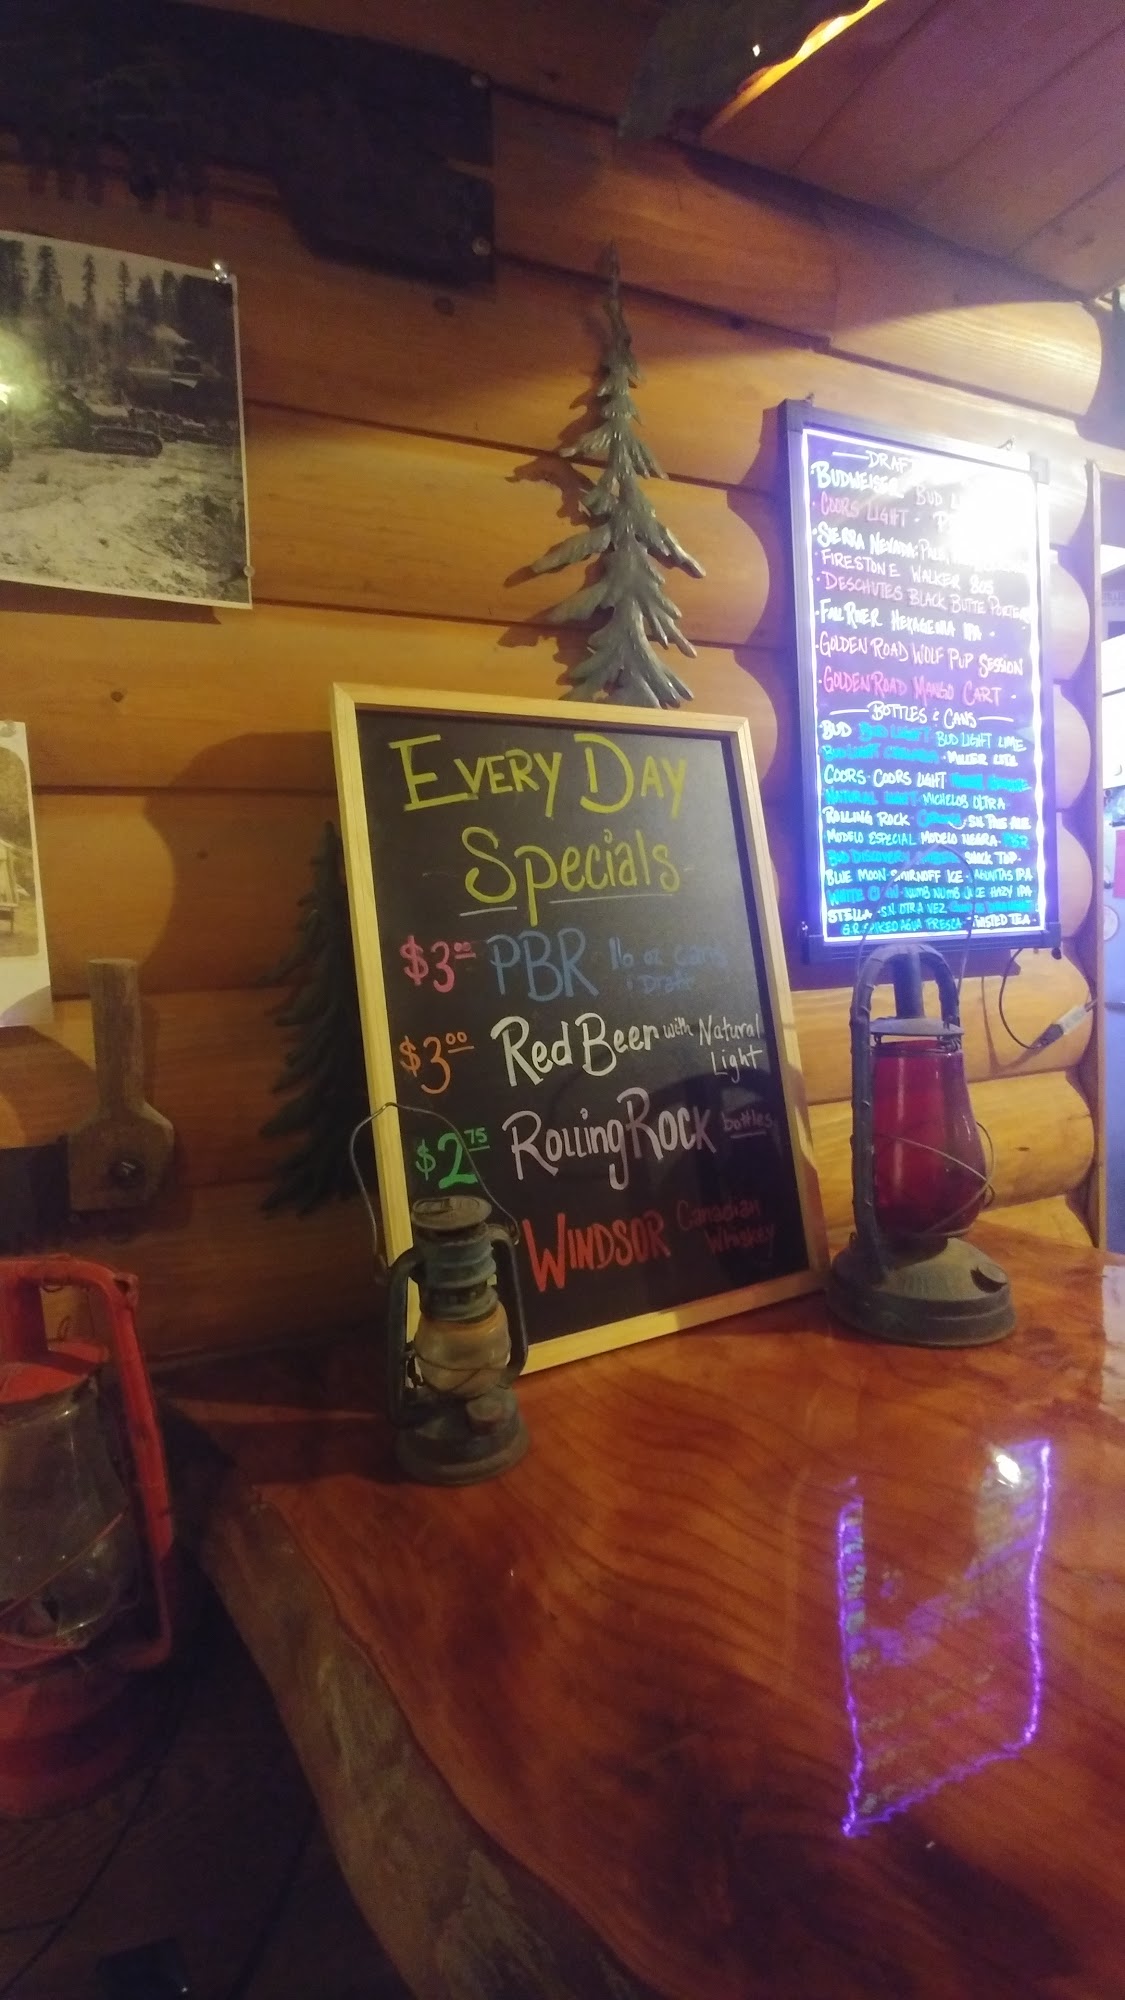 EVERY DAY
Specials
$3.00 PBR 16 oz cans
& Draft
$3.00 Red Beer with Natural
Light
$2.75 Rolling Rock bottles
WINDSOR Canadian
Whiskey
DRAFT
BUDWEISER BUD
COORS LIGHT
SIERRA NEVADA: PALE,
FIRESTONE WALKER 805
DESCHUTES BLACK BUTTE PORTER
FALL RIVER HEXAGENIA IPA
GOLDEN ROAD WOLF PUP SESSION
GOLDEN ROAD MANGO CART
BOTTLES & CANS
BUD BUD LIGHT BUD LIGHT LIME
BUD LIGHT MILLER LITE
COORS COORS LIGHT
NATURAL LIGHT MICHELOB ULTRA
ROLLING ROCK S.N. PALE ALE
MODELO ESPECIAL MODELO NEGRA PBR
BUD DISCOVERY SHOCK TOP
BLUE MOON SMIRNOFF ICE LAGUNITAS IPA
WHITE NUMB NUMB JUICE HAZY IPA
STELLA S.N. OTRA VEZ
G.R. SPIKED AGUA FRESCA TWISTED TEA